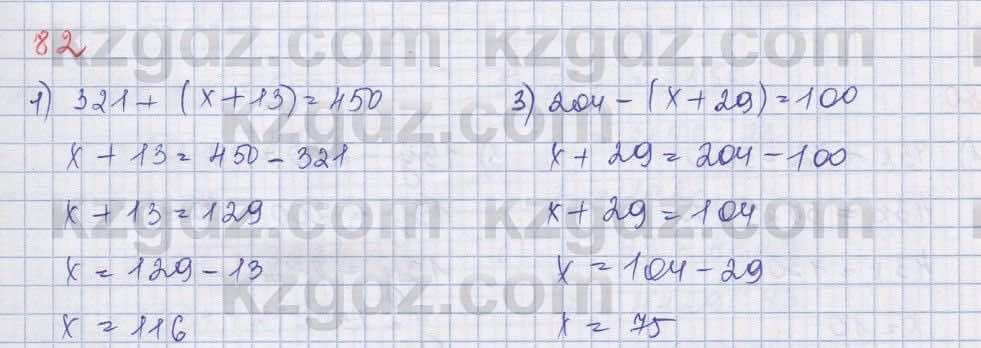 82
1) 321 + (x + 13) = 450
x + 13 = 450 - 321
x + 13 = 129
x = 129 - 13
x = 116
3) 204 - (x + 29) = 100
x + 29 = 204 - 100
x + 29 = 104
x = 104 - 29
x = 75
kzgdz.com kzgdz.com
kzgdz.com
kzgdz.com kzgdz.com
kzgdz.com